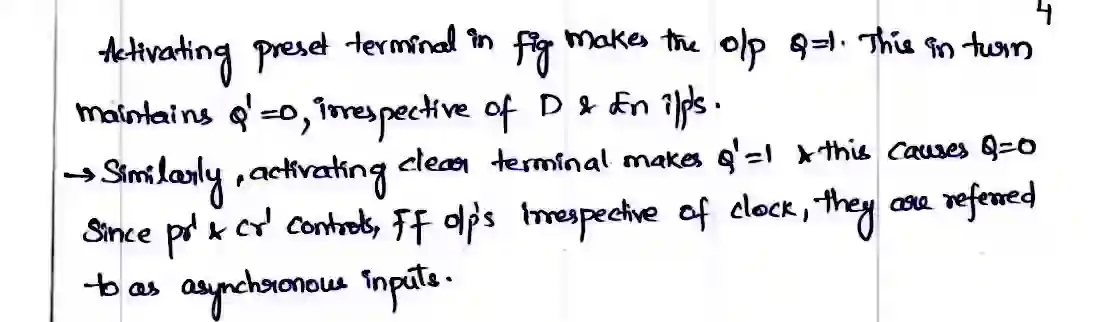 4
Activating preset terminal in fig makes the o/p Q=1. This in turn
maintains Q'=0, irrespective of D & En i/p's.
→ Similarly, activating clear terminal makes Q'=1 & this causes Q=0
Since pr' & cr' controls, FF o/p's irrespective of clock, they are referred
to as asynchronous inputs.